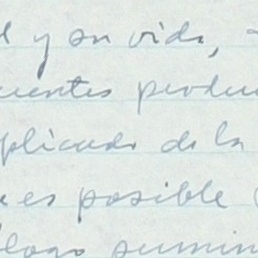 l y su vida,
uentes produc
plicado de la
es posible
logo sumin